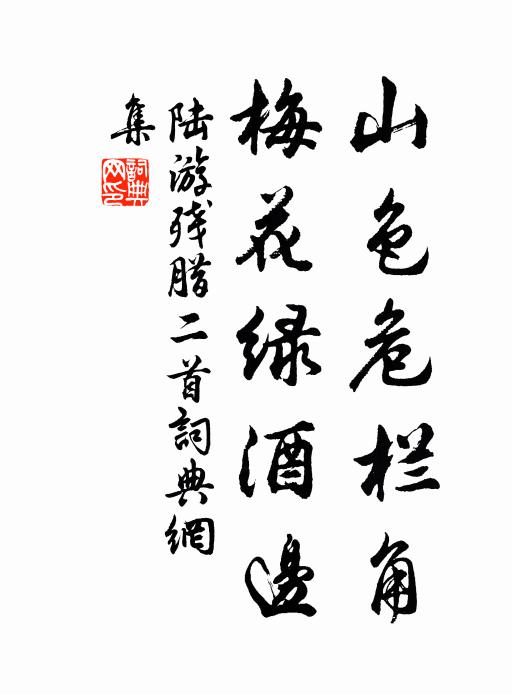 山色危栏角
梅花绿酒邊
陆游残腊二首詞典網
集
詞典网印